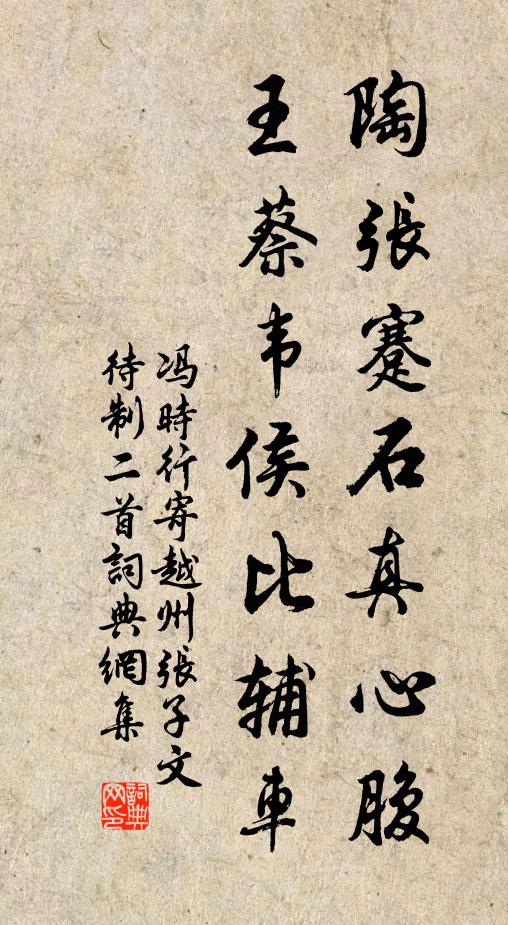 陶張蹇石真心腹
王蔡韦侯比辅車
冯時行寄越州張子文
待制二首詞典網集
詞典
网印